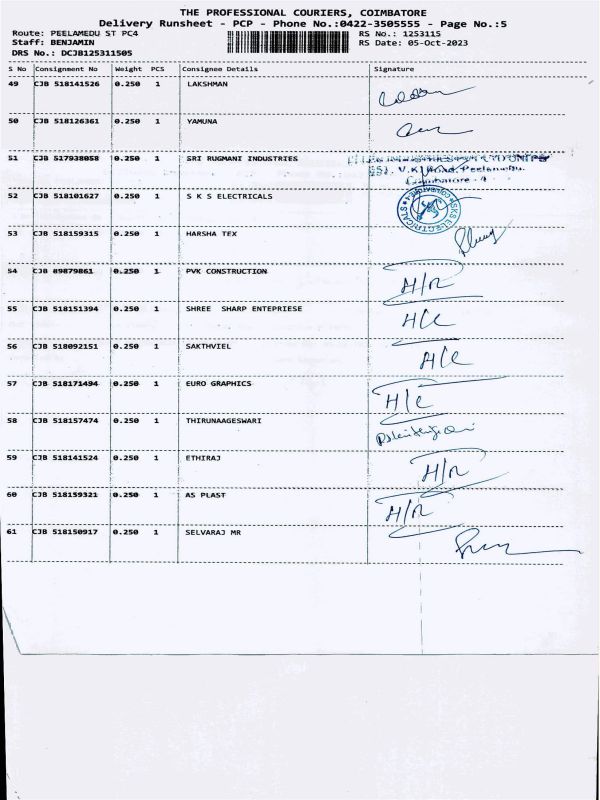 THE PROFESSIONAL COURIERS, COIMBATORE
Delivery Runsheet - PCP - Phone No.:0422-3505555 - Page No.:5
Route: PEELAMEDU ST PC4 RS No.: 1253115
Staff: BENJAMIN RS Date: 05-Oct-2023
DRS No.: DCJB125311505
S No Consignment No Weight PCS Consignee Details Signature
49 CJB 518141526 0.250 1 LAKSHMAN
50 CJB 518126361 0.250 1 YAMUNA
51 CJB 517938058 0.250 1 SRI RUGMANI INDUSTRIES
V.K. Road, Peelamedu,
Coimbatore - 4
52 CJB 518101627 0.250 1 S K S ELECTRICALS
SKS ELECTRICALS COIMBATORE
53 CJB 518159315 0.250 1 HARSHA TEX
54 CJB 89879861 0.250 1 PVK CONSTRUCTION H/R
55 CJB 518151394 0.250 1 SHREE SHARP ENTEPRIESE H/C
56 CJB 518092151 0.250 1 SAKTHVIEL H/C
57 CJB 518171494 0.250 1 EURO GRAPHICS H/C
58 CJB 518157474 0.250 1 THIRUNAAGESWARI
59 CJB 518141524 0.250 1 ETHIRAJ H/R
60 CJB 518159321 0.250 1 AS PLAST H/R
61 CJB 518150917 0.250 1 SELVARAJ MR